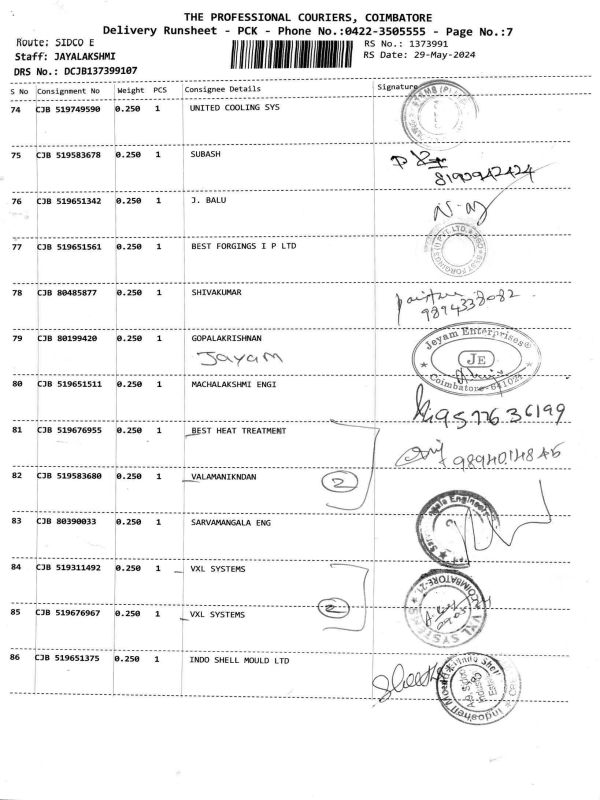 THE PROFESSIONAL COURIERS, COIMBATORE
Delivery Runsheet - PCK - Phone No.:0422-3505555 - Page No.:7
Route: SIDCO E
RS No.: 1373991
Staff: JAYALAKSHMI
RS Date: 29-May-2024
DRS No.: DCJB137399107
S No Consignment No Weight PCS Consignee Details Signature
74 CJB 519749590 0.250 1 UNITED COOLING SYS
75 CJB 519583678 0.250 1 SUBASH
8190942424
76 CJB 519651342 0.250 1 J. BALU
77 CJB 519651561 0.250 1 BEST FORGINGS I P LTD
78 CJB 80485877 0.250 1 SHIVAKUMAR
9894338082
79 CJB 80199420 0.250 1 GOPALAKRISHNAN
Jayam
Jeyam Enterprises
JE
Coimbatore-641024
80 CJB 519651511 0.250 1 MACHALAKSHMI ENGI
9577636199
81 CJB 519676955 0.250 1 BEST HEAT TREATMENT
82 CJB 519583680 0.250 1 VALAMANIKNDAN
2
83 CJB 80390033 0.250 1 SARVAMANGALA ENG
84 CJB 519311492 0.250 1 VXL SYSTEMS
COIMBATORE-21
85 CJB 519676967 0.250 1 VXL SYSTEMS
2
VXL SYSTEMS
86 CJB 519651375 0.250 1 INDO SHELL MOULD LTD